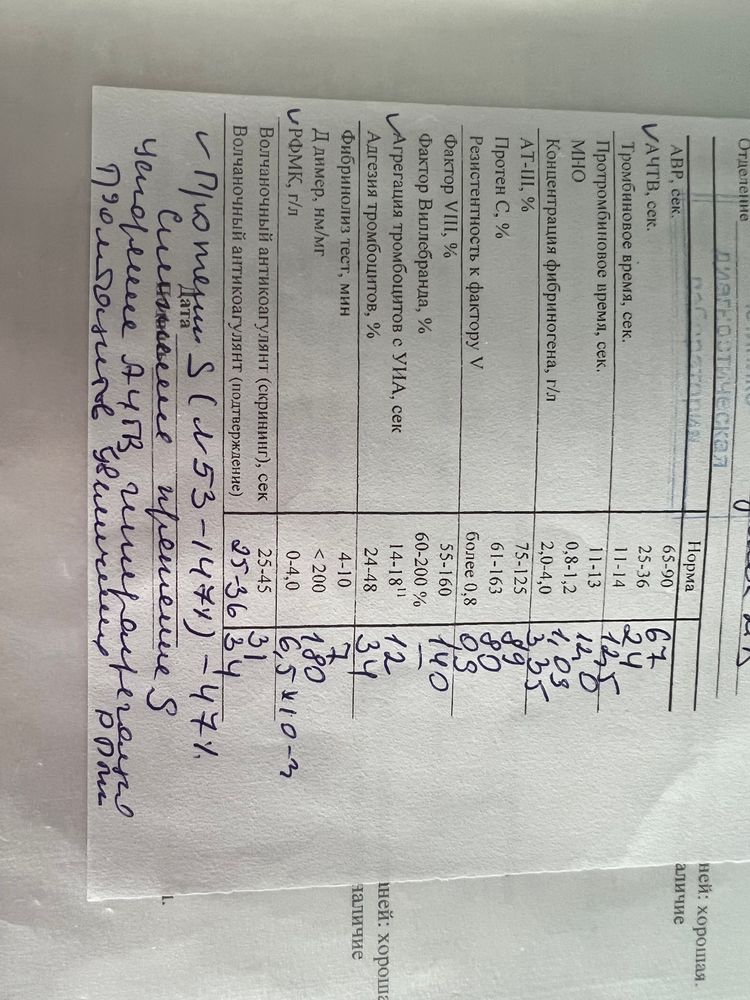 Отделение
диагностическая
лаборатория
Норма
АВР, сек. 65-90 67
✓АЧТВ, сек. 25-36 24
Тромбиновое время, сек. 11-14 12,5
Протромбиновое время, сек. 11-13 12,0
МНО 0,8-1,2 1,03
Концентрация фибриногена, г/л 2,0-4,0 3,35
АТ-III, % 75-125 89
Протен С, % 61-163 80
Резистентность к фактору V более 0,8 0,9
Фактор VIII, % 55-160 140
Фактор Виллебранда, % 60-200 % —
✓Агрегация тромбоцитов с УИА, сек 14-18¹⁾ 12
Адгезия тромбоцитов, % 24-48 34
Фибринолиз тест, мин 4-10 7
Д димер, нм/мг < 200 180
✓РФМК, г/л 0-4,0 6,5 x 10-3
Волчаночный антикоагулянт (скрининг), сек 25-45 31
Волчаночный антикоагулянт (подтверждение) 25-36 34
Дата
✓ Протеин S (N 53-147%) - 47%
протеине S
Ускорение АЧТВ гиперагрегация
тромбоцитов увеличения РФМК
ней: хорошая.
аличие
ней: хороша
наличие